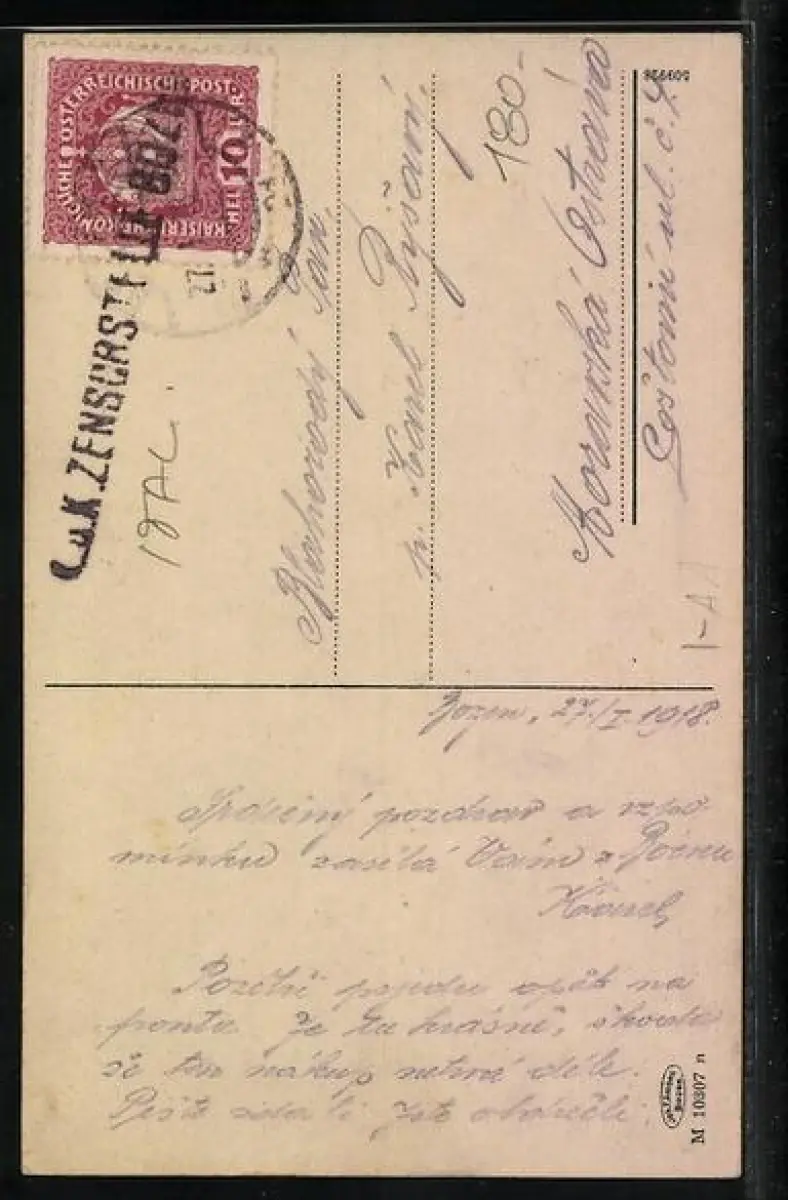 KAISERLICHE KÖNIGLICHE ÖSTERREICHISCHE POST
10 HELLER
K.u.K. ZENSURSTELLE BOZEN
27.
ITAL.
180-
Blahorodý Pan,
p. Karel Ryšavý,
Moravská Ostrava
č. 7
1-A
Bozen, 27./I. 1918.
Srdečný pozdrav a vzpo-
mínku zasílá Vám z
Karel
Pozítří pojedu opět na
frontu. Je tu krásně, škoda
že ten nákup netrvá déle.
Pište zda-li jste obdrželi
M 10307 n